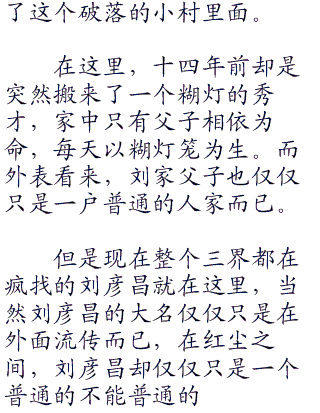 了这个破落的小村里面。
在这里，十四年前却是
突然搬来了一个糊灯的秀
才，家中只有父子相依为
命，每天以糊灯笼为生。而
外表看来，刘家父子也仅仅
只是一户普通的人家而已。
但是现在整个三界都在
疯找的刘彦昌就在这里，当
然刘彦昌的大名仅仅只是在
外面流传而已，在红尘之
间，刘彦昌却仅仅只是一个
普通的不能普通的